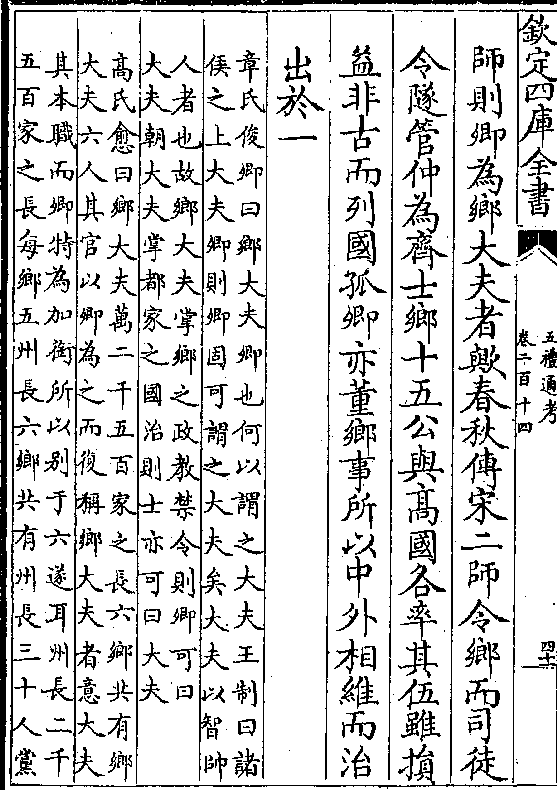 欽定四庫全書
五禮通考
卷二百十四
四十六
師則卿為鄉大夫者歟春秋傳宋二師令鄉而司徒
令隧管仲為齊士鄉十五公與髙國各率其伍雖損
益非古而列國孤卿亦董鄉事所以中外相維而治
出於一
章氏俊卿曰鄉大夫卿也何以謂之大夫王制曰諸
侯之上大夫卿則卿固可謂之大夫矣大夫以智帥
人者也故鄉大夫掌鄉之政教禁令則卿可曰
大夫朝大夫掌都家之國治則士亦可曰大夫
髙氏愈曰鄉大夫萬二千五百家之長六鄉共有鄉
大夫六人其官以卿為之而復稱鄉大夫者意大夫
其本職而卿特為加銜所以别于六遂耳州長二千
五百家之長每鄉五州長六鄉共有州長三十人黨